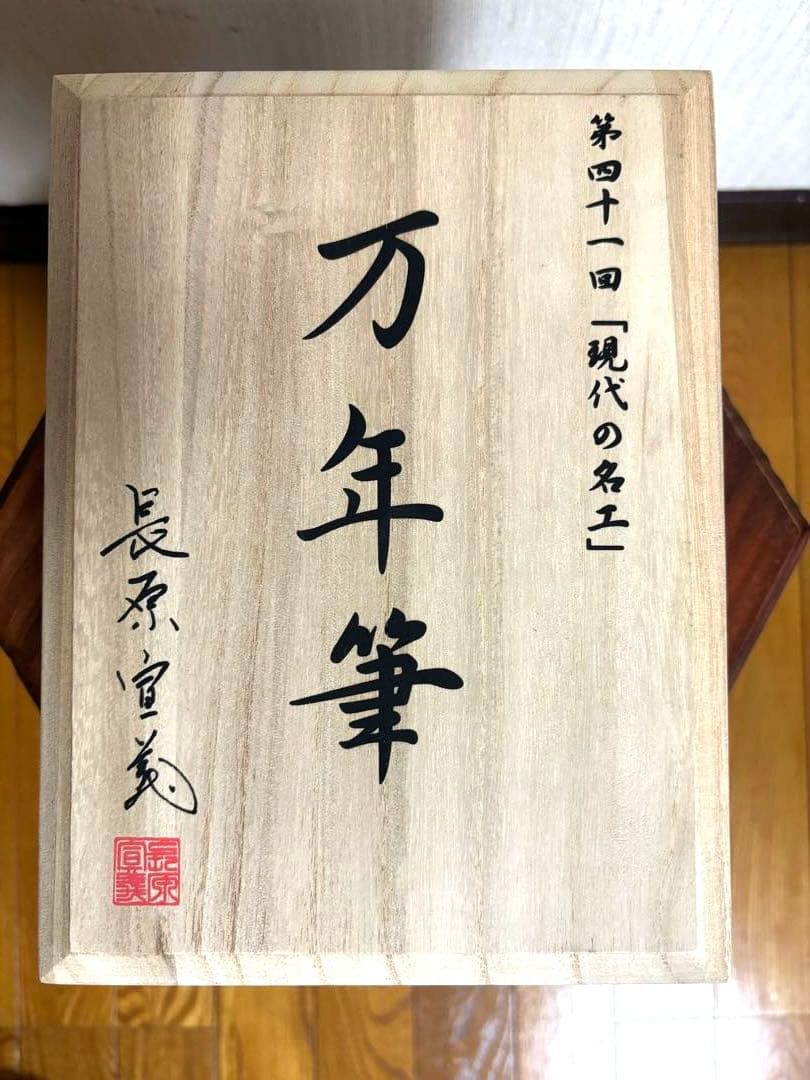 第四十一回「現代の名工」
万年筆
長原宣義
長原宣義